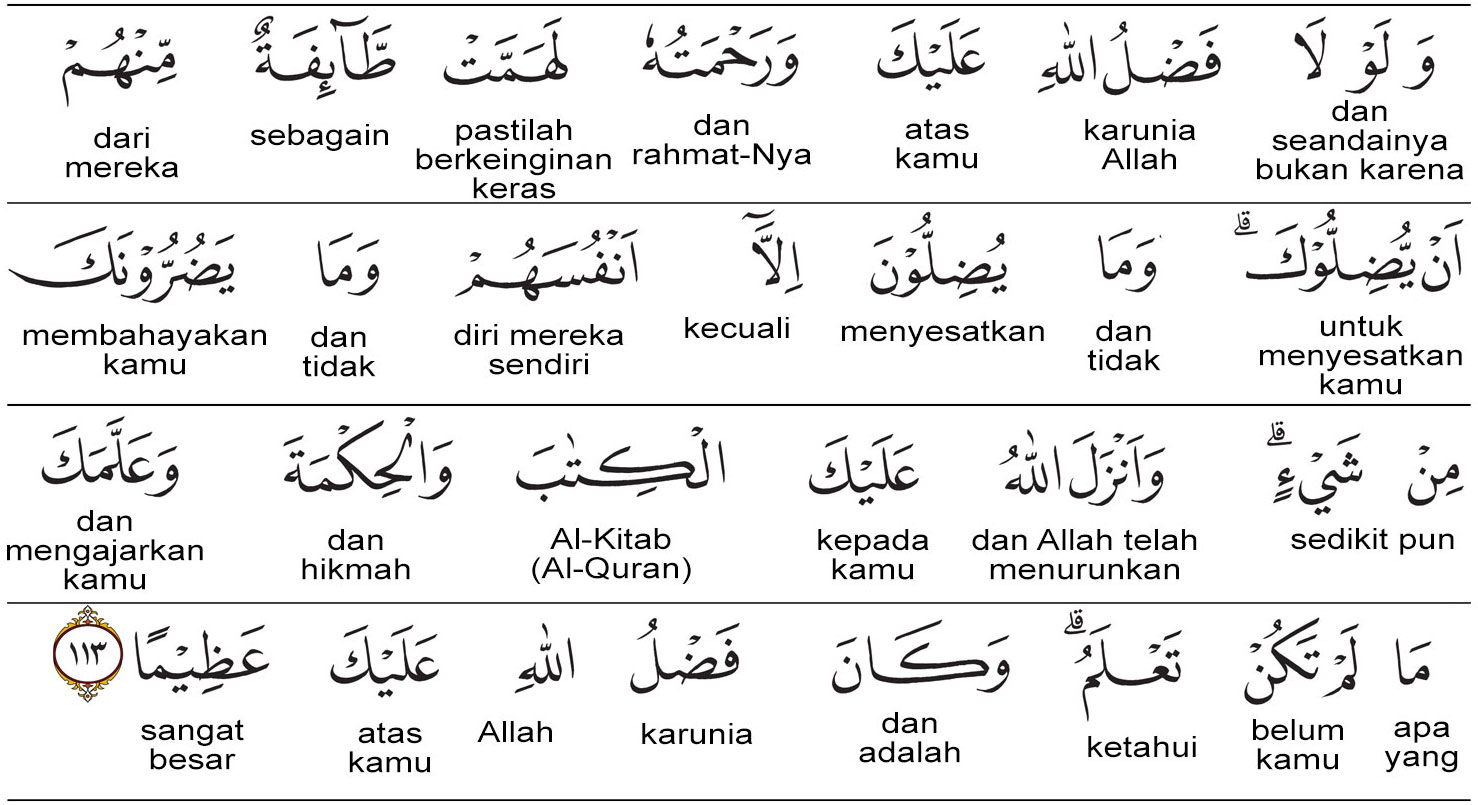 وَ لَوْ لَا فَضْلُ اللّٰهِ عَلَيْكَ وَرَحْمَتُهٗ لَهَمَّتْ طَّآئِفَةٌ مِّنْهُمْ
dan seandainya bukan karena
karunia Allah
atas kamu
dan rahmat-Nya
pastilah berkeinginan keras
sebagain
dari mereka
اَنْ يُّضِلُّوْكَ ۗ وَمَا يُضِلُّوْنَ اِلَّآ اَنْفُسَهُمْ وَمَا يَضُرُّوْنَكَ
untuk menyesatkan kamu
dan tidak
menyesatkan
kecuali
diri mereka sendiri
dan tidak
membahayakan kamu
مِنْ شَيْءٍ ۗ وَاَنْزَلَ اللّٰهُ عَلَيْكَ الْكِتٰبَ وَالْحِكْمَةَ وَعَلَّمَكَ
sedikit pun
dan Allah telah menurunkan
kepada kamu
Al-Kitab (Al-Quran)
dan hikmah
dan mengajarkan kamu
مَا لَمْ تَكُنْ تَعْلَمُ ۗ وَكَانَ فَضْلُ اللّٰهِ عَلَيْكَ عَظِيْمًا ١١٣
apa yang
belum kamu
ketahui
dan adalah
karunia
Allah
atas kamu
sangat besar